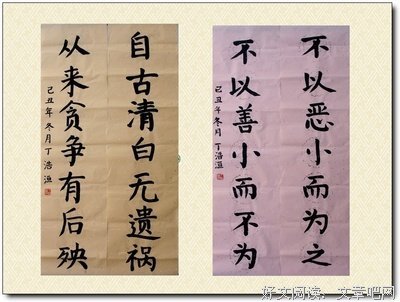 自古清白无遗祸
从来贪争有后殃
己丑年冬月丁浩
不以恶小而为之
不以善小而不为
己丑年冬月丁浩
好文阅读：文章吧网